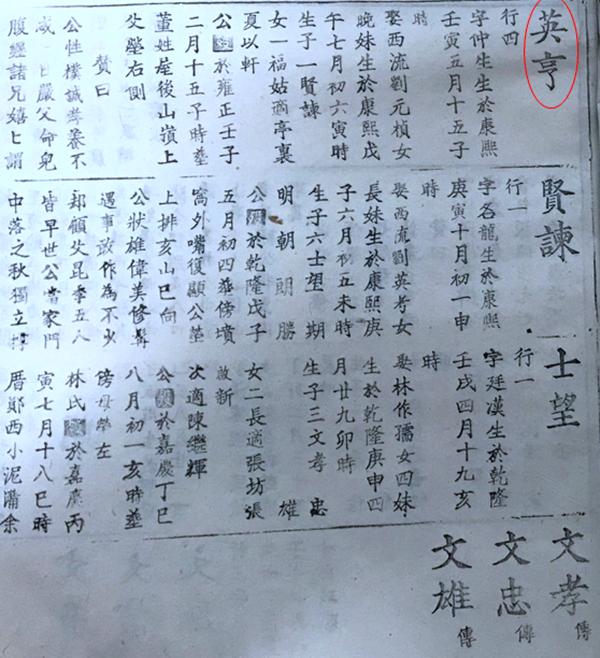 英亨
行四
字仲生生於康熙
壬寅五月十五子
時
娶西流劉元楨女
晚妹生於康熙戊
午七月初六寅時
生子一賢諫
女一福姑適亭裏
夏以軒
公於雍正壬子
二月十五午時塟
董姓屋後山嶺上
父塋右側
贊曰
公性樸誠孝養不
咸一日嚴父命兒
腹壁諸兄嬉七謂
賢諫
行一
字名龍生於康熙
庚寅十月初一申
時
娶西流劉英考女
長妹生於康熙庚
子六月初五未時
生子六士望 期
明 朝 朗 勝
公於乾隆戊子
五月初四塟傍墳
窩外嘴復顯公塋
上排亥山巳向
公狀雄偉美修髯
遇事敢作為不少
却顧父昆季五人
皆早世公當家門
中落之秋獨立撐
士望
行一
字廷漢生於乾隆
壬戌四月十九亥
時
娶林作孺女四妹
生於乾隆庚申四
月廿九卯時
生子三文孝 忠
雄
女二長適張坊張
啟新
次適陳繼輝
公於嘉慶丁巳
八月初一亥時塟
傍母塋左
林氏於嘉慶丙
寅七月十八巳時
厝鄖西小泥溝余
文孝 傳
文忠 傳
文雄 傳